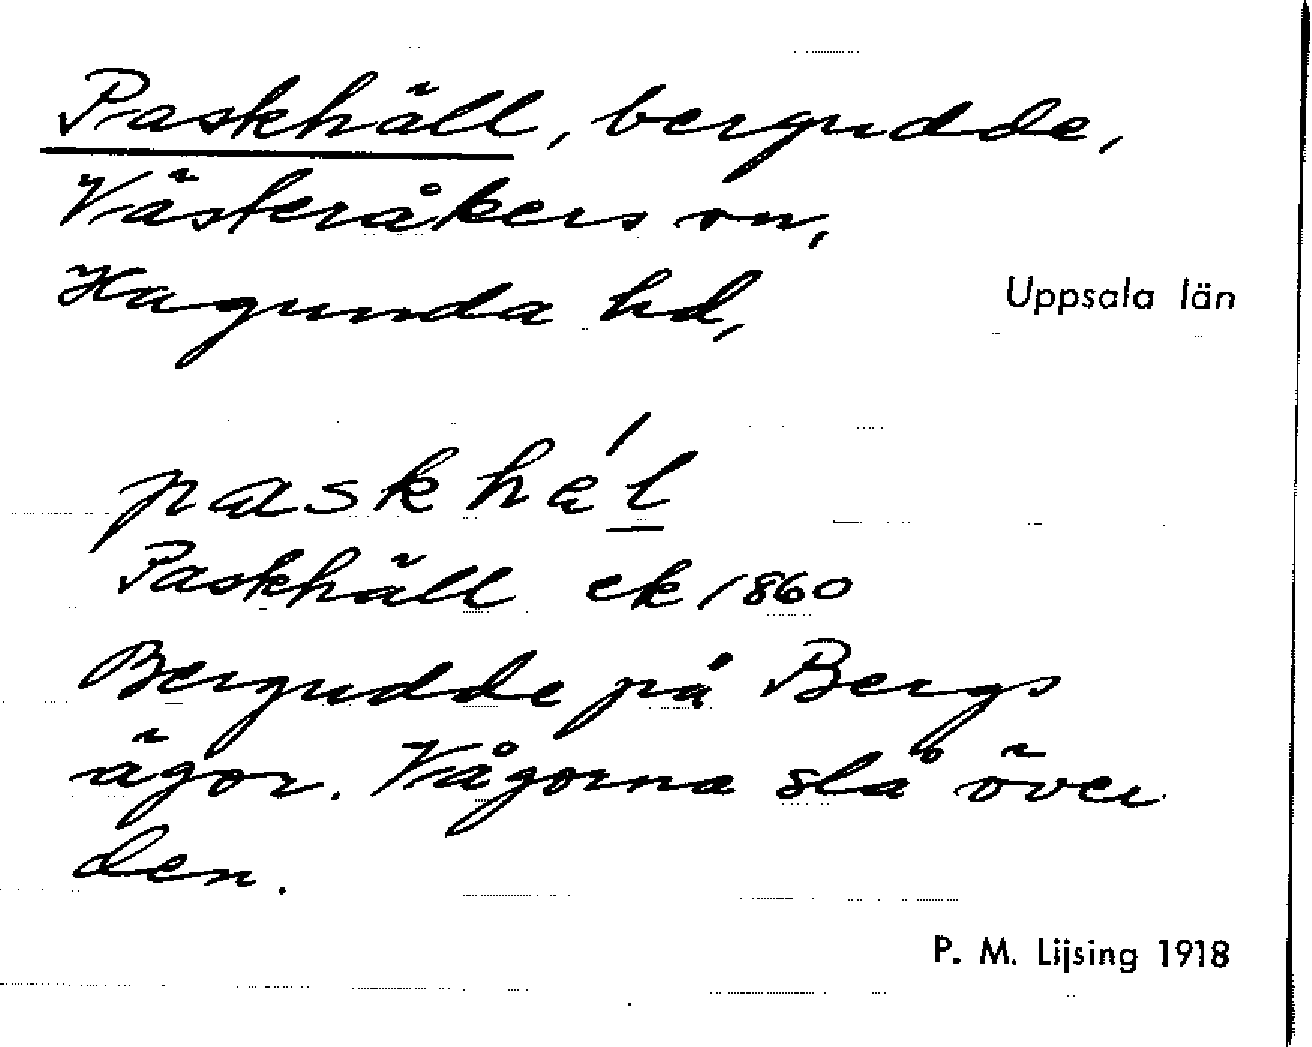 Paskhäll, bergudde,
Västeråkers sn,
Hagunda hd,
Uppsala län
paskhä́l
Paskhäll ek 1860
Bergudde på Bergs
ägor. Vågorna slå över
den.
P. M. Lijsing 1918